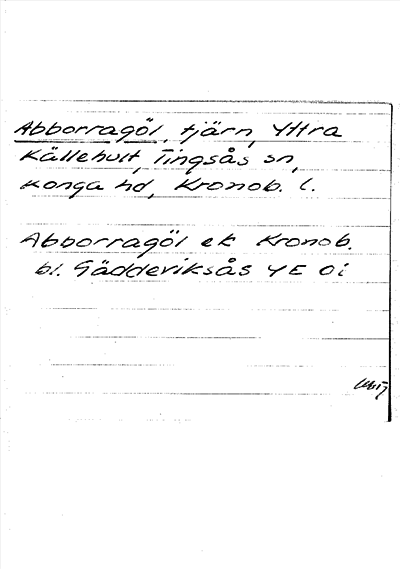 Abborragöl, tjärn, Yttra
Källehult, Tingsås sn,
Konga hd, Kronob. l.
Abborragöl ek Kronob.
bl. Gädderiksås 4 E Öi